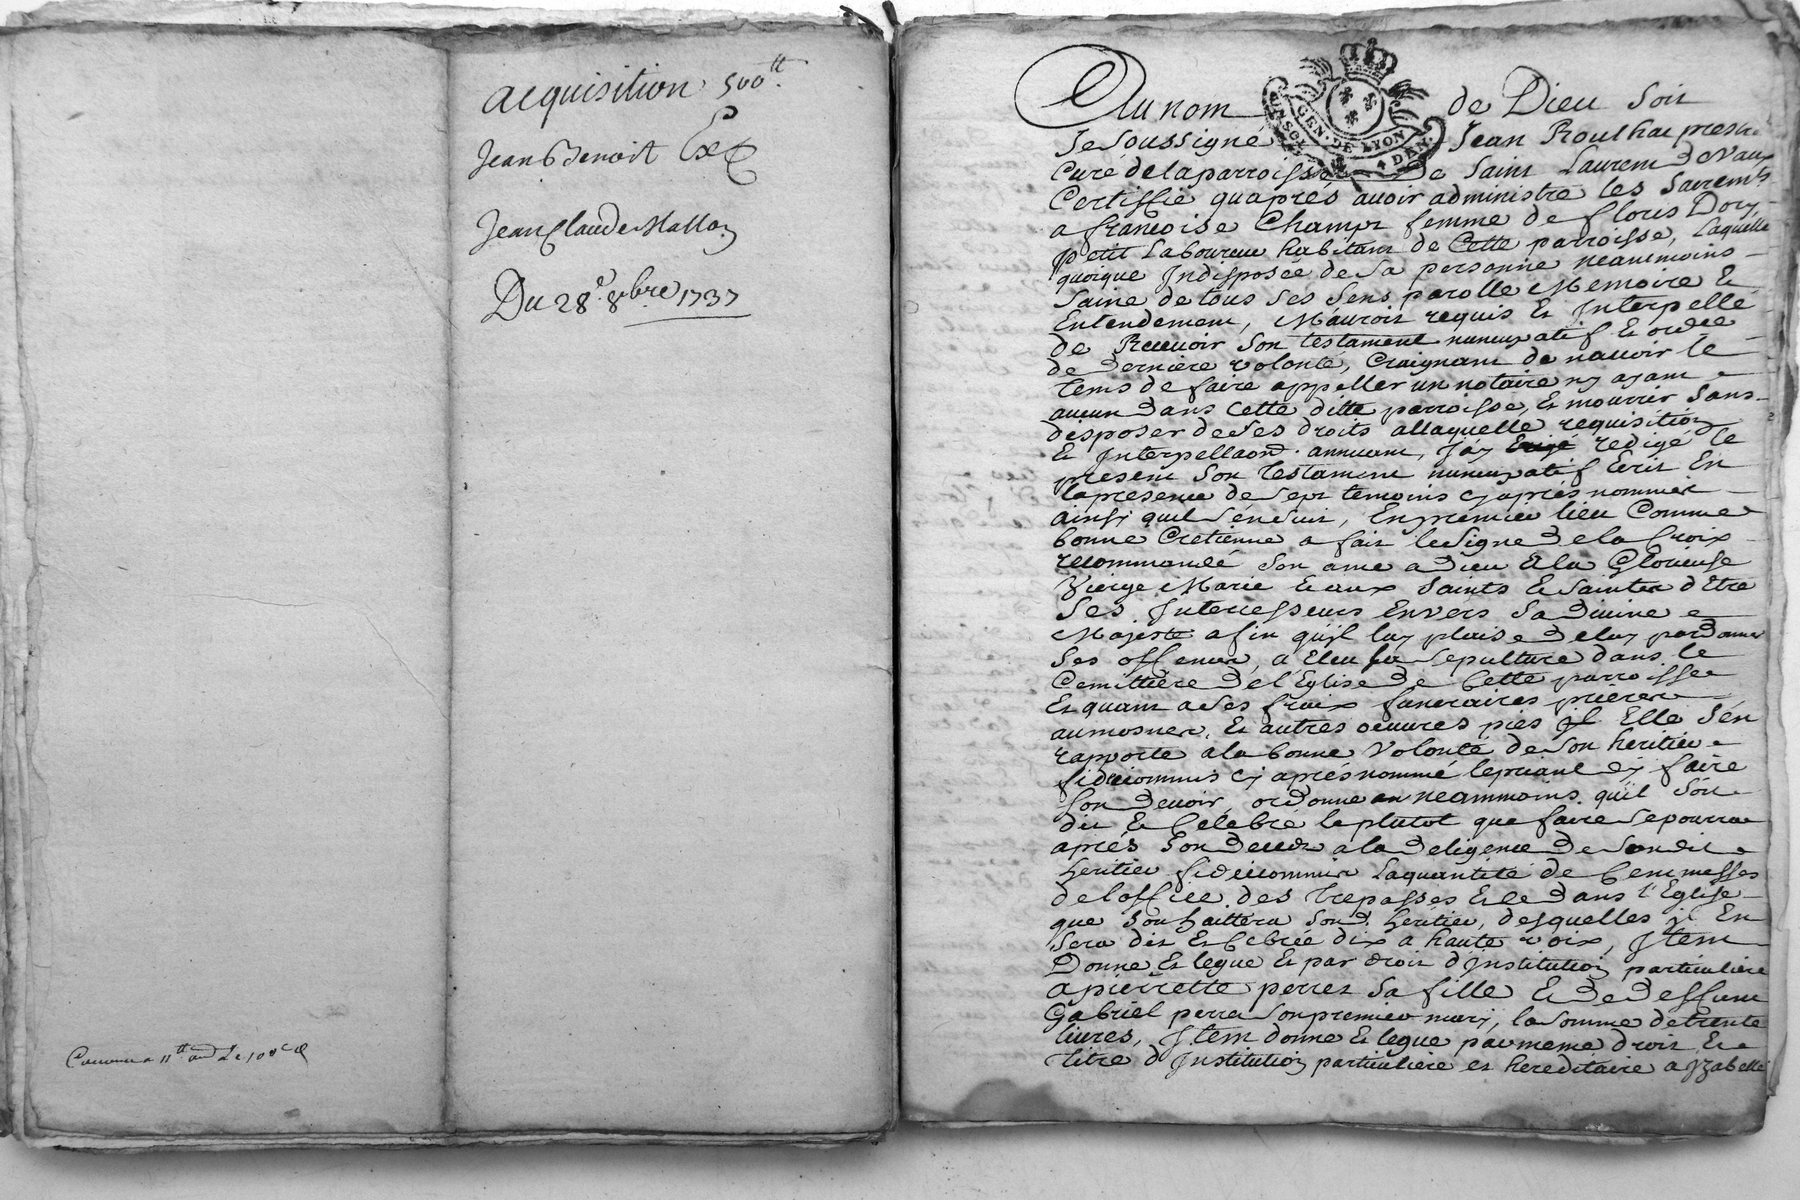 acquisition 500tt.
Jean Benoit
Jean Claude Mallon
Du 28e. 8bre 1737
GEN. DE LYON
4 DEN.
Au nom de Dieu Soit
Je Soussigné Jean Roulhac prestre
Curé de la parroisse de Saint Laurent de Vaux
Certiffie qu'aprés auoir administré les Sacremts
a francoise Champt femme de floris Dory
petit Laboureur habitant de Cette parroisse, Laquelle
quoique Indisposée de Sa personne neanmoins
Saine de tous Ses Sens parolle Memoire Et
Entendement, M'auroit requis Et Interpellé
de Receuoir Son testament nuncupatif Et ordce
de Derniere volonté, Craignant de nauoir le
tems de faire appeller un notaire ny ayant
aucun dans Cette ditte parroisse, Et mourrir Sans
disposer de Ses droits a llaquelle requisition
Et Interpellaond. annuant, J'ay redigé le
present Son testament nuncupatif Ecrit En
la presence de Sept temoins cy aprés nommer
ainsi quil S'en Suit, En premier lieu Comme
bonne Cretienne a fait le Signe de la Croix
recommandé Son ame a Dieu a la Glorieuse
Vierge Marie Et aux Saints Et Saintes d'Etre
Ses Intercesseurs Envers Sa Divine
Majesté afin quil luy plaise de luy pardonner
Ses offences, a Eleu Sa Sepulture dans le
Cemittiere de l'Eglise de Cette parroisse
Et quant a Ses fraix funeraires prieres
aumosnes, Et autres oeuures pies Elle S'en
rapporte a la bonne Volonté de Son heritier
fideicommis cy aprés nommé le priant d'y faire
Son Deuoir, ordonne neammoins quil Soit
dit Et Celebré le plutot que faire Se pourra
aprés Son Decedz a la Deligence de Sondit
heritier fideicommis La quantité de Cent messes
de l'office des Trepasses Et ce dans l'Eglise
que Souhaittera Sond. heritier, desquelles il En
Sera dit Et Celebrée dix a haute voix, Jtem
Donne Et legue Et par droit d'Institution particuliere
a pierrette perret Sa fille Et de deffunt
Gabriel perra Son premier mary, la Somme de trente
liures, Jtem donne Et legue par meme droit Et
titre d'Institution particuliere et hereditaire a Yzabelle